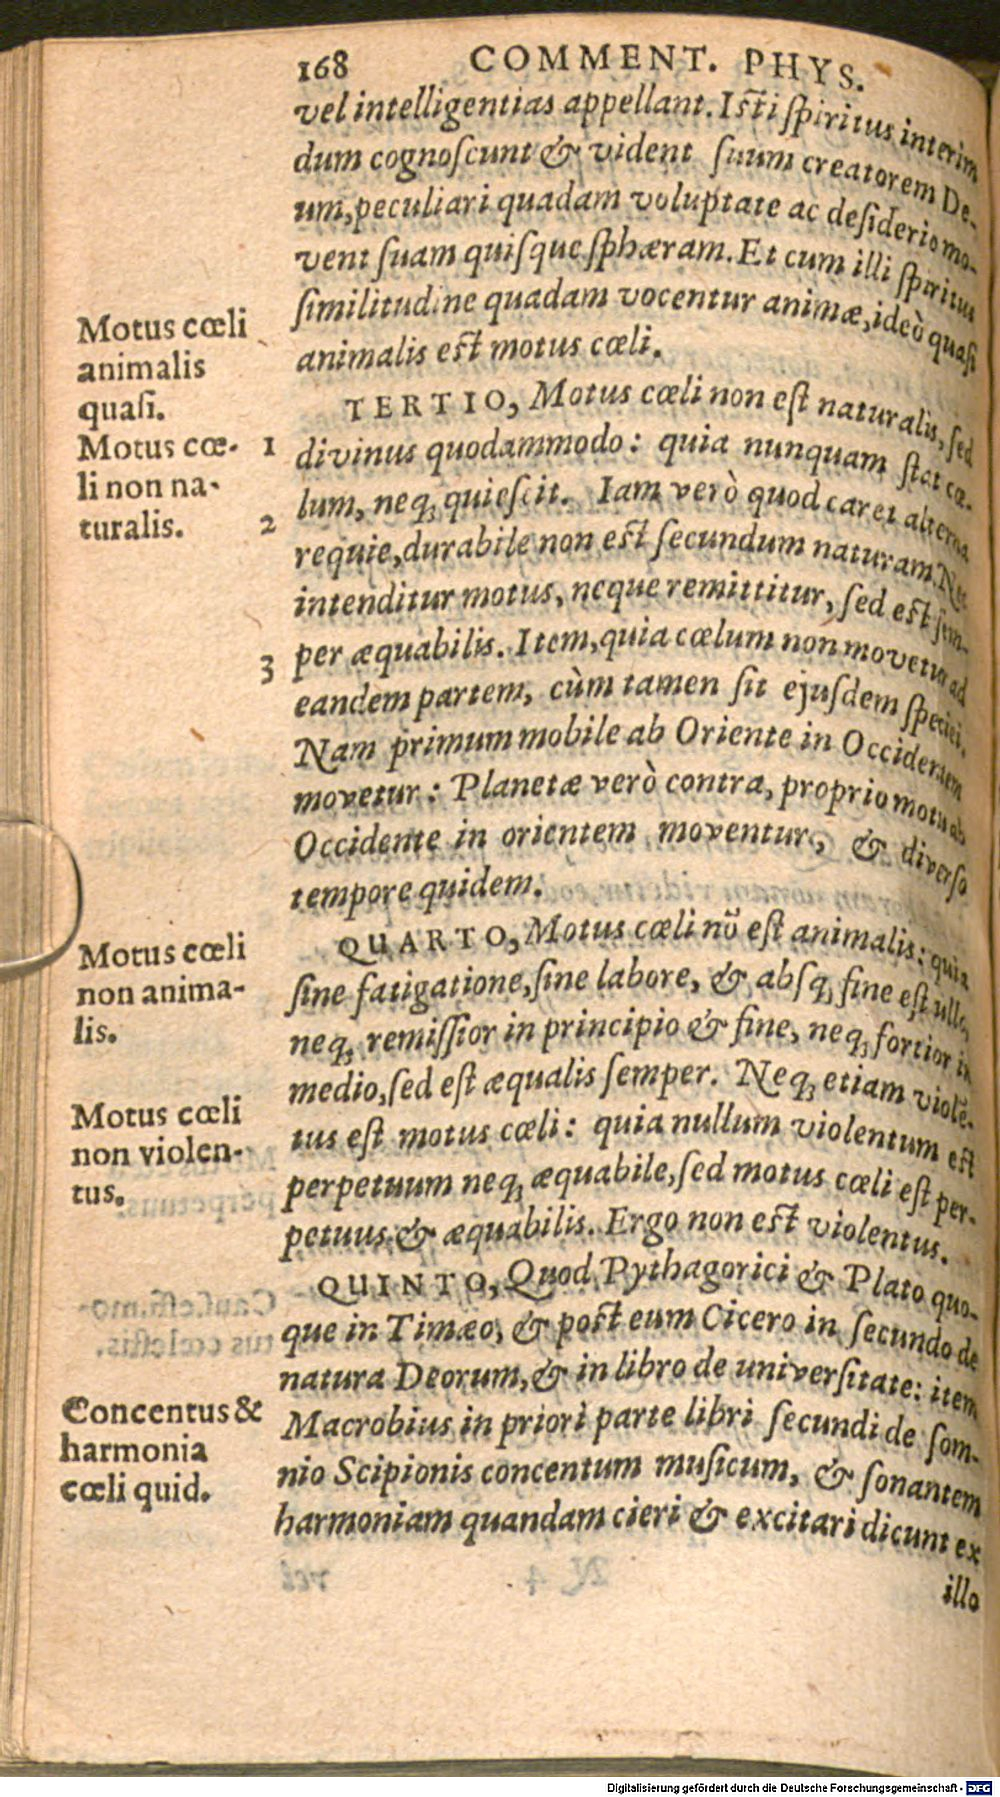 168 COMMENT. PHYS.
vel intelligentias appellant. Isti ſpiritus interim
dum cognoſcunt & vident ſuum creatorem De-
um, peculiari quadam voluptate ac deſiderio mo-
vent ſuam quiſque ſphæram. Et cum illi ſpiritus
ſimilitudine quadam vocentur animæ, ideò quaſi
animalis eſt motus cœli.
Motus cœli
animalis
quaſi.
TERTIO, Motus cœli non eſt naturalis, ſed
divinus quodammodo: quia nunquam ſtat cœ-
lum, neq; quieſcit. Iam verò quod caret alterna
requie, durabile non eſt ſecundum naturam. Nec
intenditur motus, neque remittitur, ſed eſt ſem-
per æquabilis. Item, quia cœlum non movetur ad
eandem partem, cùm tamen ſit ejuſdem ſpeciei.
Nam primum mobile ab Oriente in Occidentem
movetur: Planetæ verò contra, proprio motu ab
Occidente in orientem moventur, & diverſo
tempore quidem.
Motus cœ-
li non na-
turalis.
1
2
3
QUARTO, Motus cœli nō eſt animalis: quia
ſine fatigatione, ſine labore, & abſq; fine eſt ullo,
neq; remiſſior in principio & fine, neq; fortior in
medio, ſed eſt æqualis ſemper. Neq; etiam violē-
tus eſt motus cœli: quia nullum violentum eſt
perpetuum neq; æquabile, ſed motus cœli eſt per-
petuus & æquabilis. Ergo non eſt violentus.
Motus cœli
non anima-
lis.
Motus cœli
non violen-
tus.
QUINTO, Quod Pythagorici & Plato quo-
que in Timæo, & poſt eum Cicero in ſecundo de
natura Deorum, & in libro de univerſitate: item
Macrobius in priori parte libri ſecundi de ſom-
nio Scipionis concentum muſicum, & ſonantem
harmoniam quandam cieri & excitari dicunt ex
illo
Concentus &
harmonia
cœli quid.
Digitalisierung gefördert durch die Deutsche Forschungsgemeinschaft - DFG